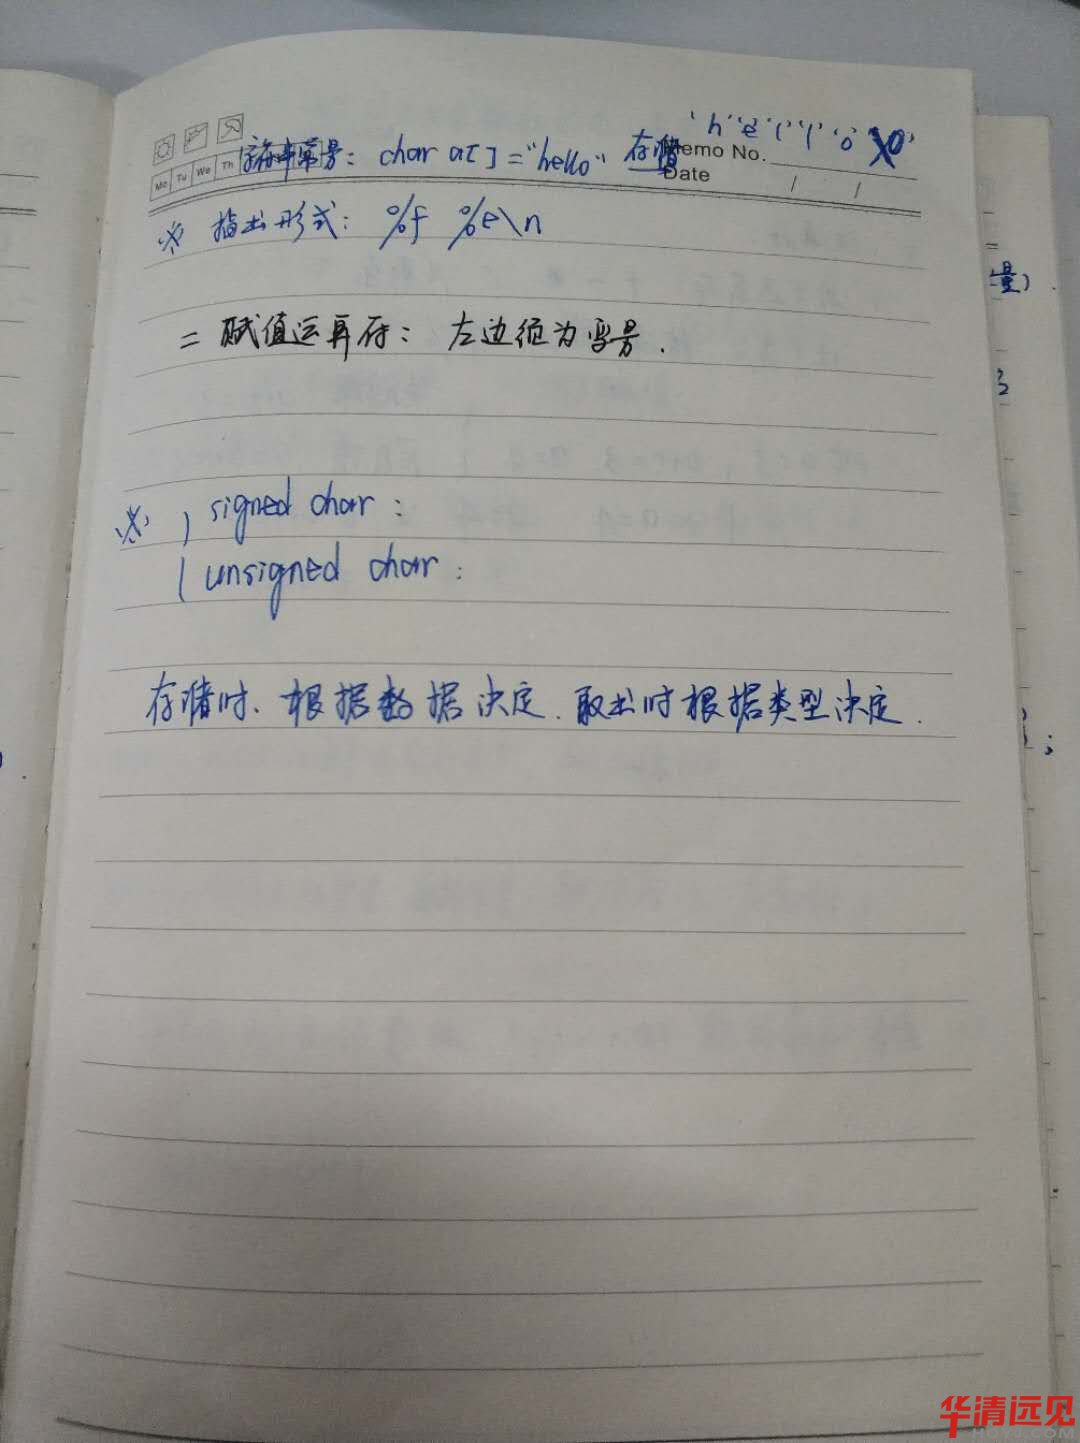 'h' 'e' 'l' 'l' 'o' '\0'
字符串常量: char a[] = "hello" 存储
Memo No.
Mo Tu We Th
Date / /
※ 指出形式: %f %e\n
= 赋值运算符: 左边须为变量.
量).
※ signed char:
unsigned char:
存储时、根据数据决定.取出时根据类型决定.
华清远见
HQYJ.COM